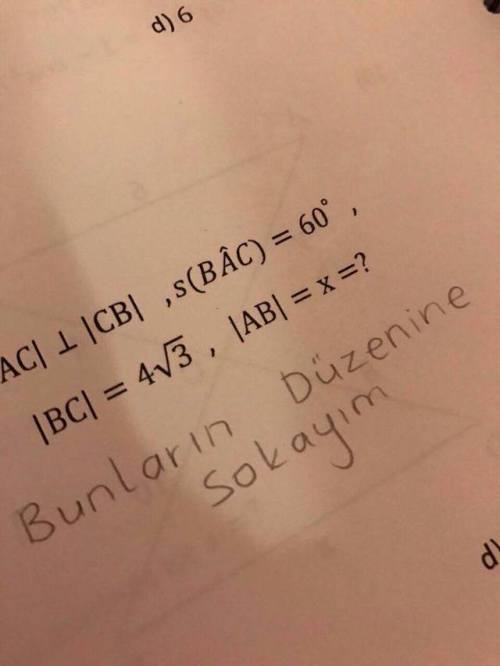 d) 6
AC| ⊥ |CB| , s(BÂC) = 60° ,
|BC| = 4√3 , |AB| = x =?
Bunların Düzenine
Sokayım
d)